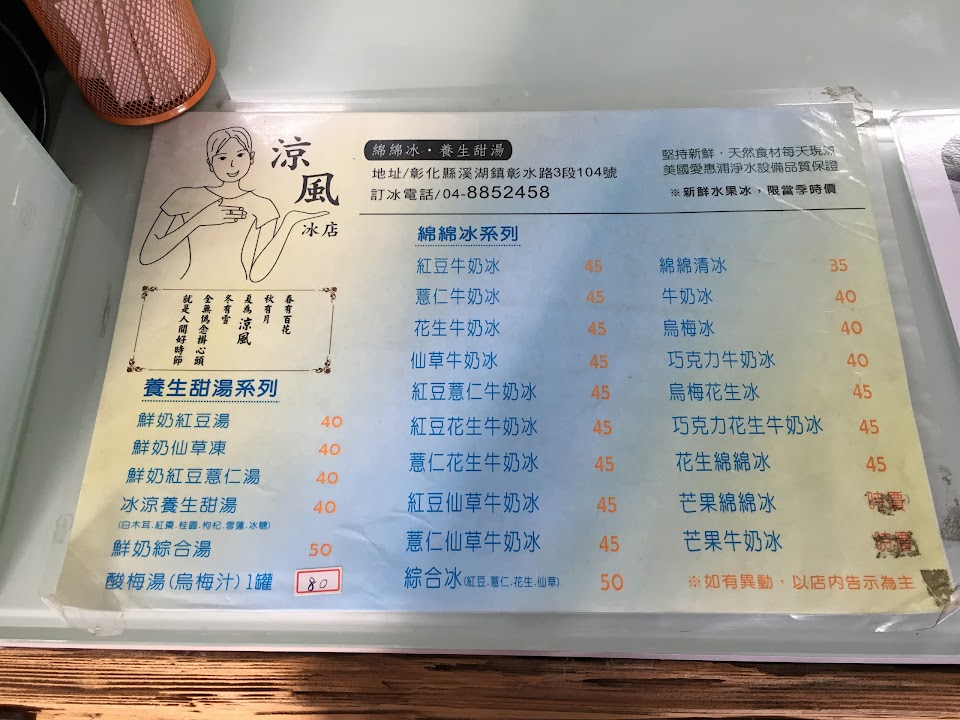 涼風
冰店
綿綿冰・養生甜湯
地址/彰化縣溪湖鎮彰水路3段104號
訂冰電話/04-8852458
堅持新鮮,天然食材每天現
美國愛惠浦淨水設備品質保證
※新鮮水果冰,限當季時價
春有百花
秋有月
夏為涼風
冬有雪
全無偽念掛心頭
就是人間好時節
養生甜湯系列
鮮奶紅豆湯 40
鮮奶仙草凍 40
鮮奶紅豆薏仁湯 40
冰涼養生甜湯 40
(白木耳.紅棗.桂圓.枸杞.雪蓮.冰糖)
鮮奶綜合湯 50
酸梅湯(烏梅汁)1罐 80
綿綿冰系列
紅豆牛奶冰 45
薏仁牛奶冰 45
花生牛奶冰 45
仙草牛奶冰 45
紅豆薏仁牛奶冰 45
紅豆花生牛奶冰 45
薏仁花生牛奶冰 45
紅豆仙草牛奶冰 45
薏仁仙草牛奶冰 45
綜合冰(紅豆.薏仁.花生.仙草) 50
綿綿清冰 35
牛奶冰 40
烏梅冰 40
巧克力牛奶冰 40
烏梅花生冰 45
巧克力花生牛奶冰 45
花生綿綿冰 45
芒果綿綿冰 時價
芒果牛奶冰 時價
※如有異動,以店內告示為主